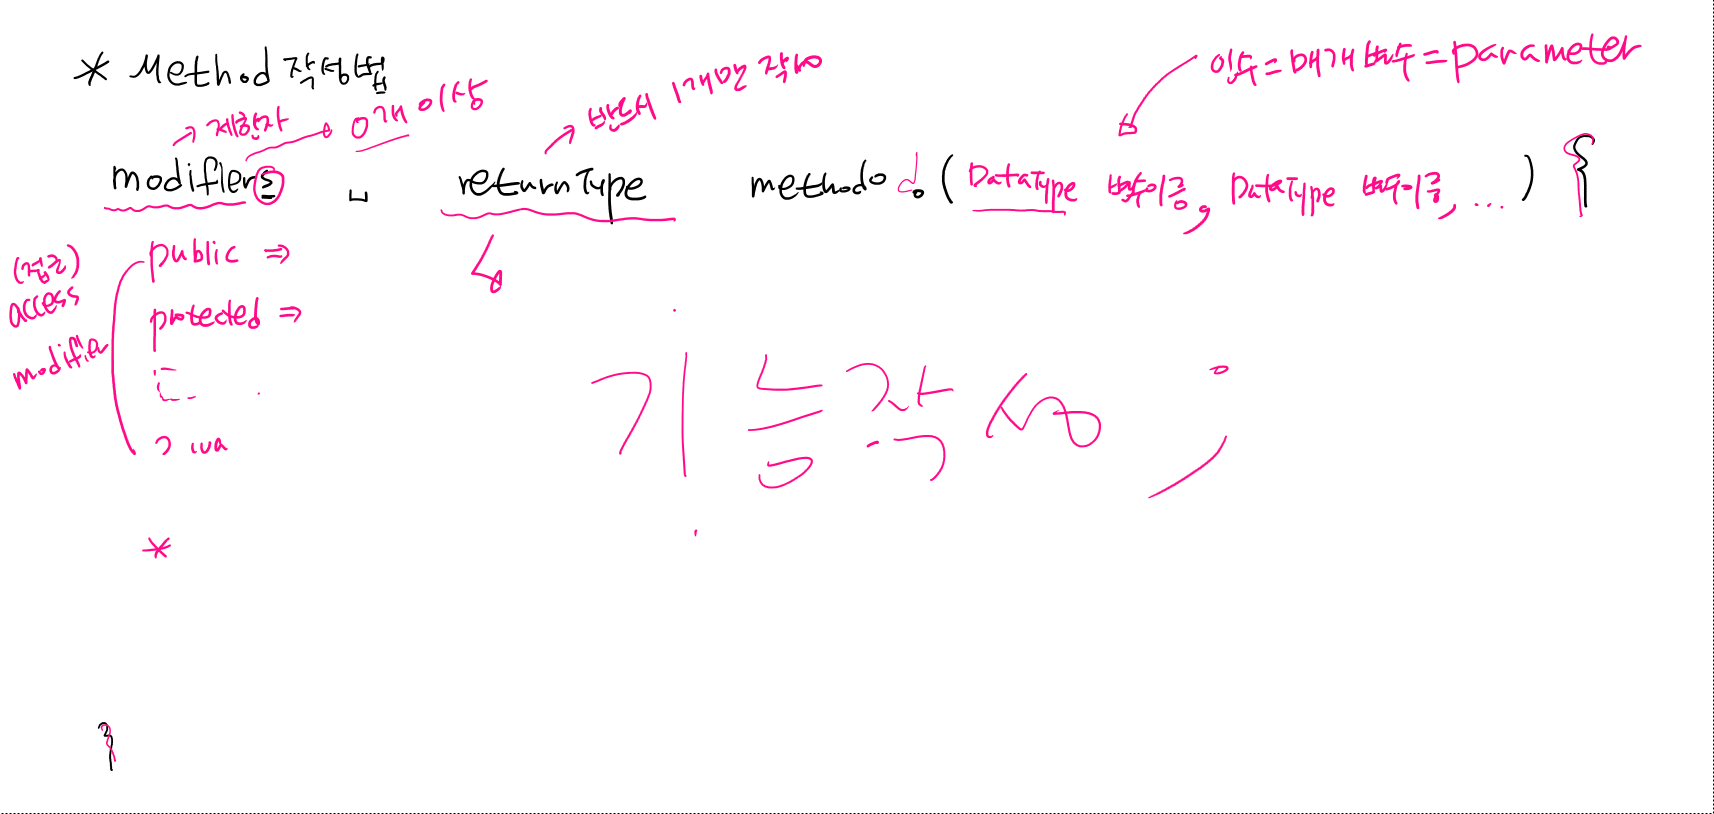 * Method 작성법
→ 제한자 → 0개 이상
→ 반드시 1개만 작성
인수 = 매개변수 = parameter
modifiers ␣ returnType method명(DataType 변수이름, DataType 변수이름, ...) {
(접근)
access
modifier
public ⇒
protected ⇒
기능작성;
*
}